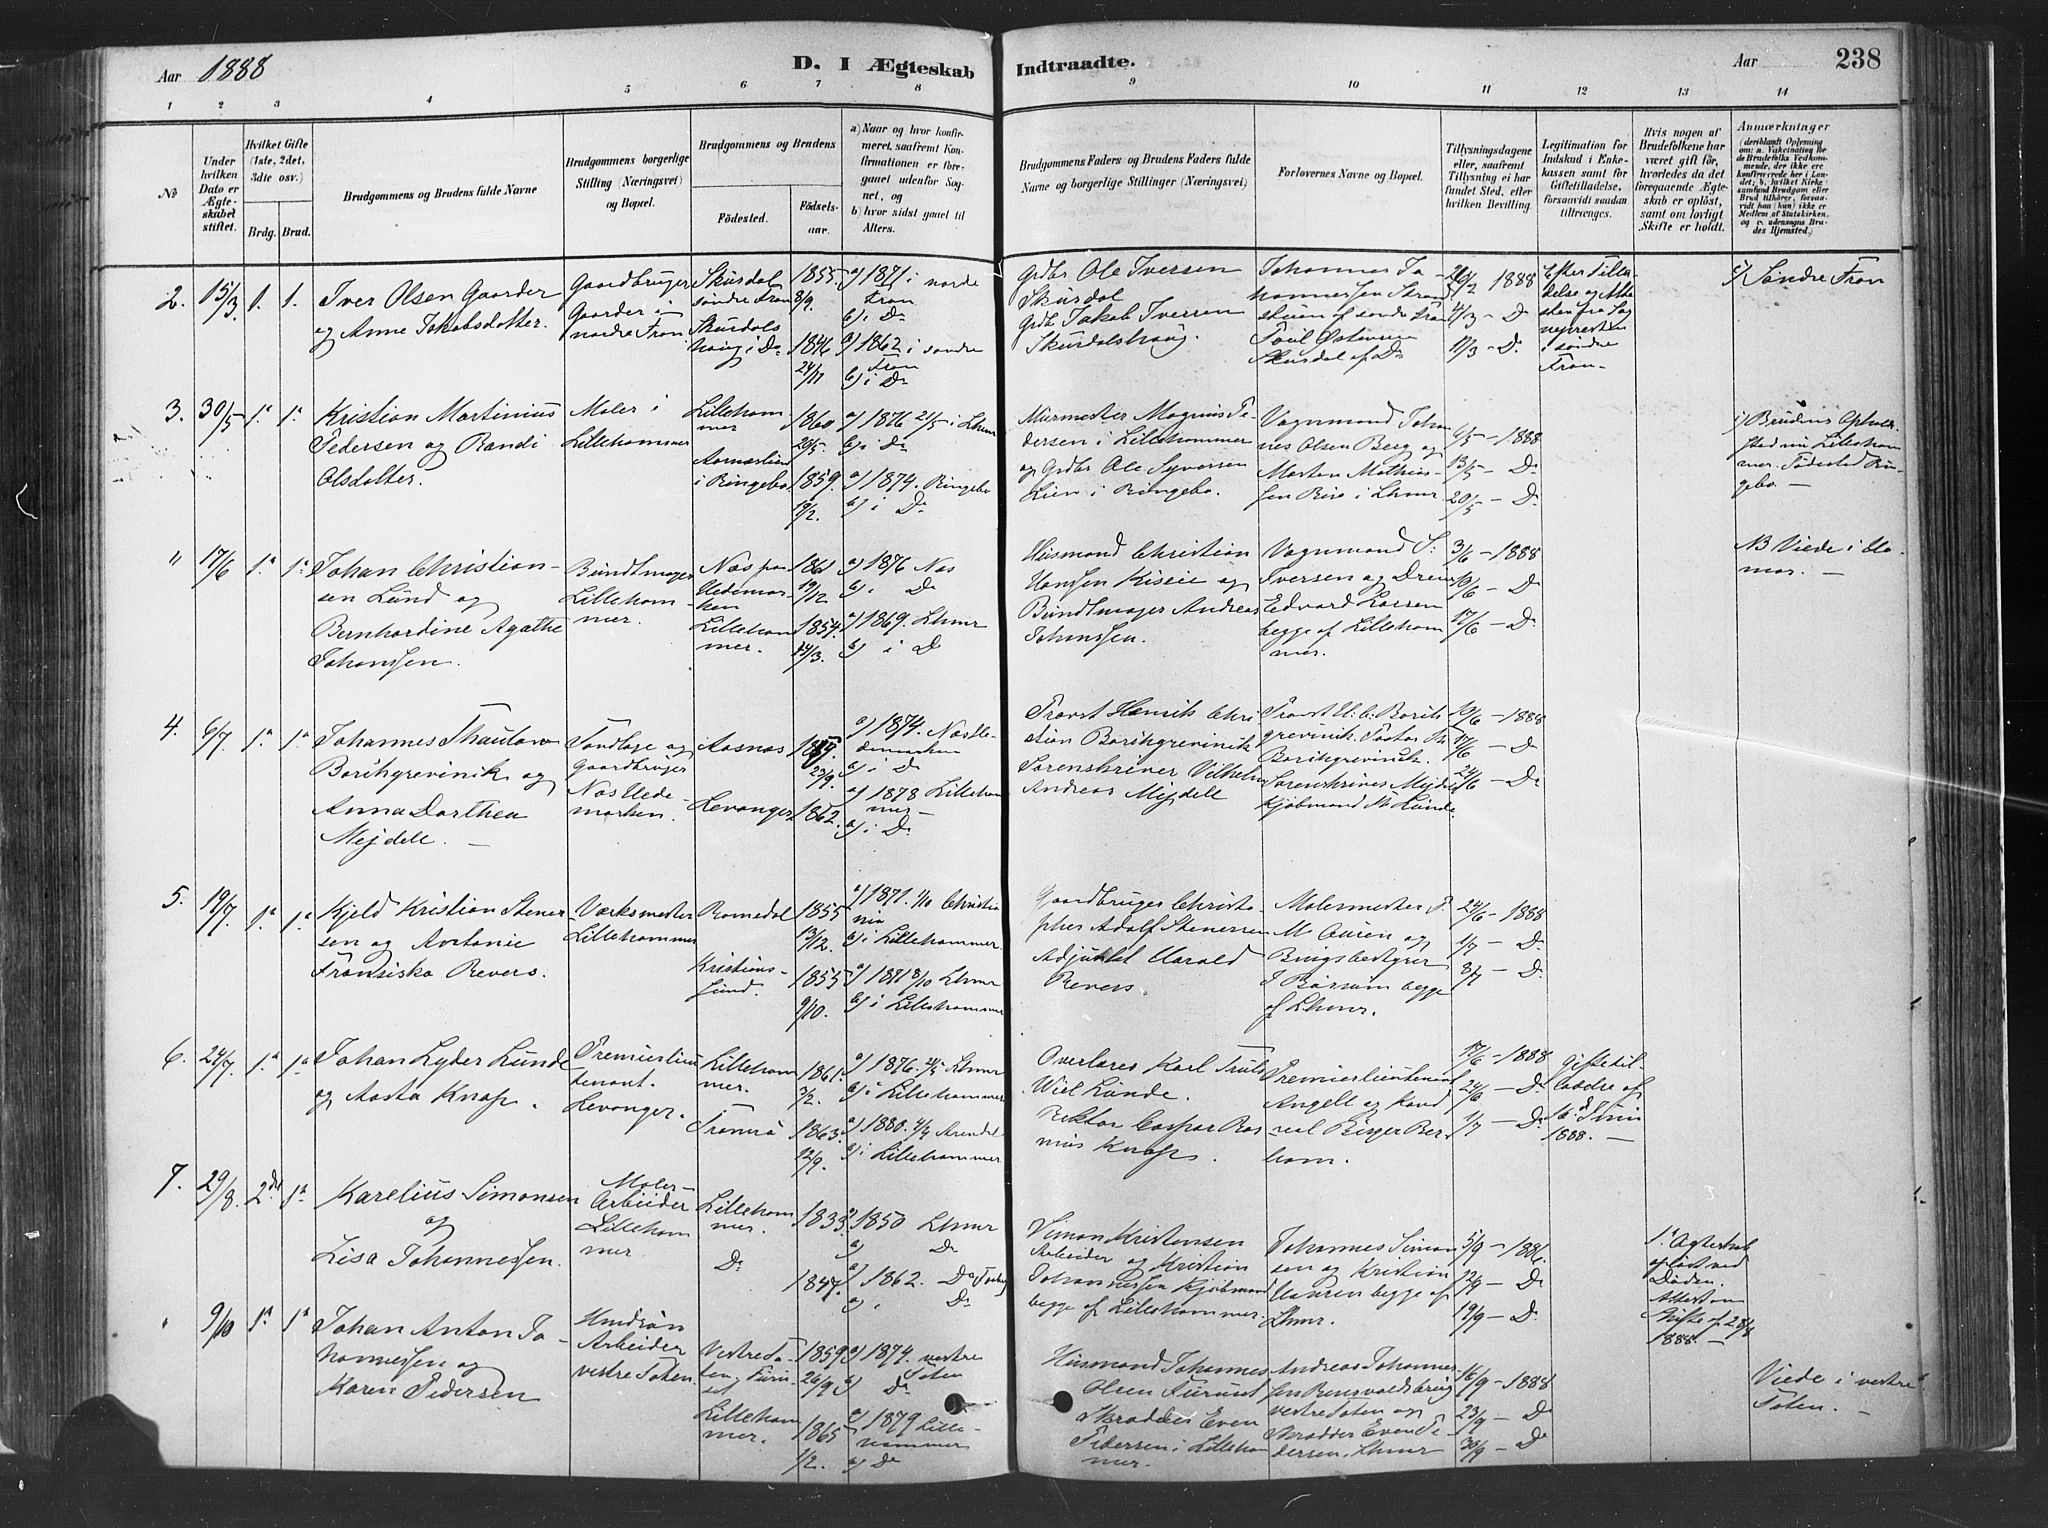 Aar 1888
D. I Ægteskab Indtraadte.
Aar
238
1 2 3 4 5 6 7 8 9 10 11 12 13 14
No
Under hvilken Dato er Ægteskabet stiftet.
Hvilket Gifte (1ste, 2det, 3die osv.)
Brdg. Brud.
Brudgommens og Brudens fulde Navne
Brudgommens borgerlige Stilling (Næringsvei) og Bopæl.
Brudgommens og Brudens
Fødested.
Fødselsaar.
a) Naar og hvor konfirmeret, saafremt Konfirmationen er foregaaet udenfor Sognet, og
b) hvor sidst gaaet til Alters.
Brudgommens Faders og Brudens Faders fulde Navne og borgerlige Stillinger (Næringsvei)
Forlovernes Navne og Bopæl.
Tillysningsdagene eller, saafremt Tillysning ei har fundet Sted, efter hvilken Bevilling
Legitimation for Indskud i Enkekassen samt for Giftetilladelse, forsaavidt saadan tiltrænges.
Hvis nogen af Brudefolkene har været gift før, hvorledes da det foregaaende Ægteskab er opløst, samt om lovligt Skifte er holdt.
Anmærkninger
2. 15/3. 1. 1.
Iver Olsen Gaarder
og Anne Jakobsdotter.
Gaardbruger
Gaarder i
nordre Fron.
Skurdal
søndre Fron
Skurdals
haug i Do
1855
8/9.
1846
24/11
a) 1871 i nordre
Fron
b) i Do
a) 1862 i søndre
Fron
b) i Do
Grdbr Ole Iversen
Skurdal
Grdbr Jakob Iversen
Skurdalshaug.
Johannes Jo-
hannessen
af søndre Fron
Skurdal af Do
26/2 1888
4/3 - Do
11/3 - Do.
Efter Tilla-
delse og Atte-
sten fra Sog-
nepresten
i søndre
Fron -
Søndre Fron
3. 30/5 1a 1a
Kristian Martinius
Pedersen og Randi
Olsdatter.
Maler i
Lillehammer
Lilleham-
mer
i Ringebo.
1860
20/5
1859.
19/2.
a) 1876 21/5 i Lhmr
b) i Do
a) 1874. Ringebo
b) i Do
Murmester Magnus Pe-
dersen i Lillehammer
og Grdbr Ole Syversen
Lien i Ringebo.
Vognmand Johan-
nes Olsen Berg og
Morten Mathias-
sen Birs i Lhmr.
6/5 - 1888
13/5 - Do
20/5 - Do
Brudens Ophold-
sted nu Lilleham
mer. Fødested Rin-
gebo. -
" 17/6 1a 1a
Johan Christian-
sen Lund og
Bernhardine Agathe
Johanssen.
Bundtmager
Lilleham-
mer.
Næs paa
Hedemar-
ken
Lilleham
mer.
1861
19/12
1854.
14/3.
a) 1876 Næs
b) i Do
a) 1869. Lhmr
b) i Do
Husmand Christian
Hanssen Kiseie og
Bundtmager Andreas
Johanssen.
Vognmand S.
Iversen og
Edvard Larsen
begge af Lilleham
mer.
3/6 - 1888
10/6 - Do
17/6 - Do
NB Viede i Ha-
mar. -
4. 6/7. 1a 1a
Johannes Thaulow
Borchgrevinik og
Anna Dorthea
Mejdell. -
Tandlæge og
Gaardbruger
Næs Hede-
marken.
Aasnæs
Levanger
23/9.
1862.
a) 1874. Næs He-
demarken
b) i Do
a) 1878 Lilleham
mer -
b) i Do
Provst Henrik Chri
stian Borchgrevinik
Sorenskriver Vilhelm
Andreas Mejdell
Provst H. C. Borch
grevinik. Pastor
Borchgrevinik.
Sorenskriver Mejdell
Kjøbmand Lunde.
10/6 - 1888
17/6 - Do
24/6 - Do
5. 19/7. 1a 1a
Kjeld Kristian Stener
sen og Antonie
Fransiska Revers.
Værksmester
Lillehammer
Romedal
Kristians-
sund.
1855
13/12.
1855
9/10.
a) 1871. 1/10 Christia
nia
b) i Lillehammer.
a) 1871 8/10 Lhmr
b) i Lillehammer
Gaardbruger Christo-
pher Adolf Stenersen
Adjunkt Harald
Revers.
Malermester P.
M. Auren og
Brugsbestyrer
J Børsum begge
af Lhmr.
24/6 - 1888
1/7 - Do
8/7 - Do
6. 24/7. 1a 1a
Johan Lyder Lunde
og Aasta Knap.
Premierlieu-
tenant.
Levanger.
Lilleham
mer.
Tromsø
1861.
3/2.
1863.
22/9.
a) 1876. Lhmr
b) i Lillehammer
a) 1880. Arendal
b) i Lillehammer
Overlærer Karl Truls
Wiel Lunde.
Rektor Caspar Ras-
mus Knap.
Premierlieutenant
Angell og Kand
real Birger Ber-
ham.
17/6 - 1888
24/6 - Do
1/7 - Do
Giftetil-
ladelse af
16 Juni
1888. -
7. 29/8. 2det 1a
Karelius Simonsen
og
Lisa Johannessen.
Maler-
Arbeider
Lilleham
mer
Lilleham
mer.
Do
1833
1847.
a) 1850 Lhmr
b) Do
a) 1862. Do
b) i Do
Simon Kristensen
Arbeider og Kristian
Johannessen Kjøbmand
begge af Lillehammer.
Johannes Simon
sen og Kristian
Hansen begge af
Lhmr.
5/9 - 1886.
12/9 - Do
19/9 - Do
1a Ægteskab
opløst ved
Døden.
Attest om
Skifte af 28/8
1888. -
" 9/10 1a 1a
Johan Anton Jo-
hannessen og
Karen Pedersen
Arbeider
vestre Toten
Vestre To-
ten
Lilleham
mer.
1859
26/9
1865
1/2.
a) 1874. vestre
Toten
b) Do
a) 1879 Lille-
hammer
b) Do
Husmand Johannes
Olsen Furuset
Skrædder Even
Pedersen i Lilleham
mer.
Andreas Johannes-
sen Rensvoldsbrug
vestre Toten og
Skrædder Even Pe-
dersen. Lhmr
16/9 - 1888
23/9 - Do
30/9 - Do
Viede i vestre
Toten. -